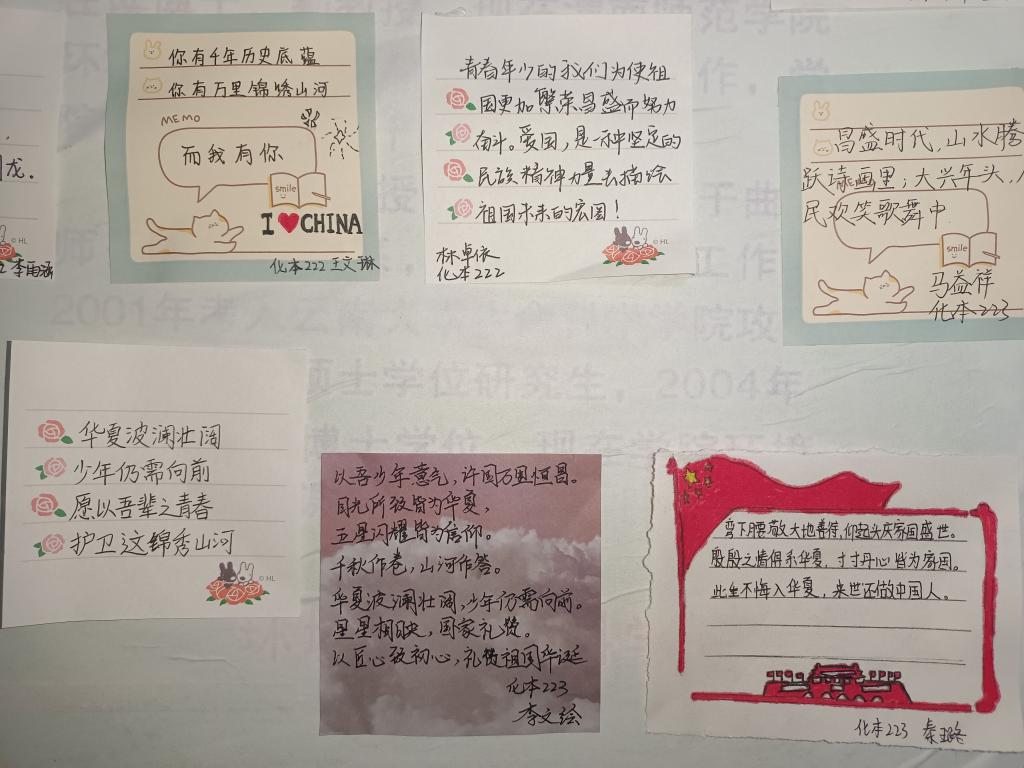 你有千年历史底蕴
你有万里锦绣山河
MEMO
而我有你
smile
I ❤ CHINA
化本222 王文琳
青春年少的我们为使祖
国更加繁荣昌盛而努力
奋斗。爱国,是一种坚定的
民族精神力量去描绘
祖国未来的宏图!
© HL
林卓依
化本222
昌盛时代,山水腾
跃诗画里;大兴年头,人
民欢笑歌舞中
smile
马益祥
化本223
龙.
© HL
李雨涵
2001年考入云南
学院攻
硕士学位研究生,2004年
博士学位
现在学院环境
华夏波澜壮阔
少年仍需向前
愿以吾辈之青春
护卫这锦秀山河
© HL
以吾少年意气,许国万里恒昌。
目光所致皆为华夏,
五星闪耀皆为信仰。
千秋作卷,山河作答。
华夏波澜壮阔,少年仍需向前。
星星相映,国家礼赞。
以匠心致初心,礼赞祖国华诞
化本223
李文绘
弯下月要敬大地善待,仰起头庆家国盛世。
殷殷之情俱系华夏,寸寸丹心皆为家国。
此生不悔入华夏,来世还做中国人。
化本223 秦璐